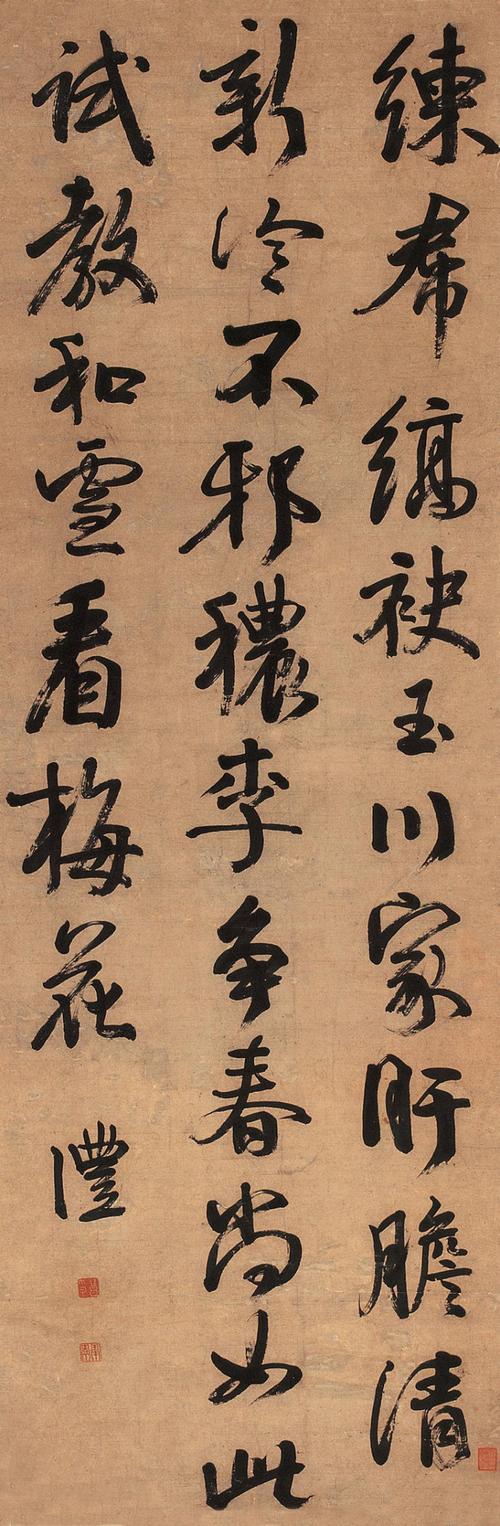 練帬縞袂玉川家肝膽清
新冷不邪穠李争春尚如此
試教和雪看梅花
澧